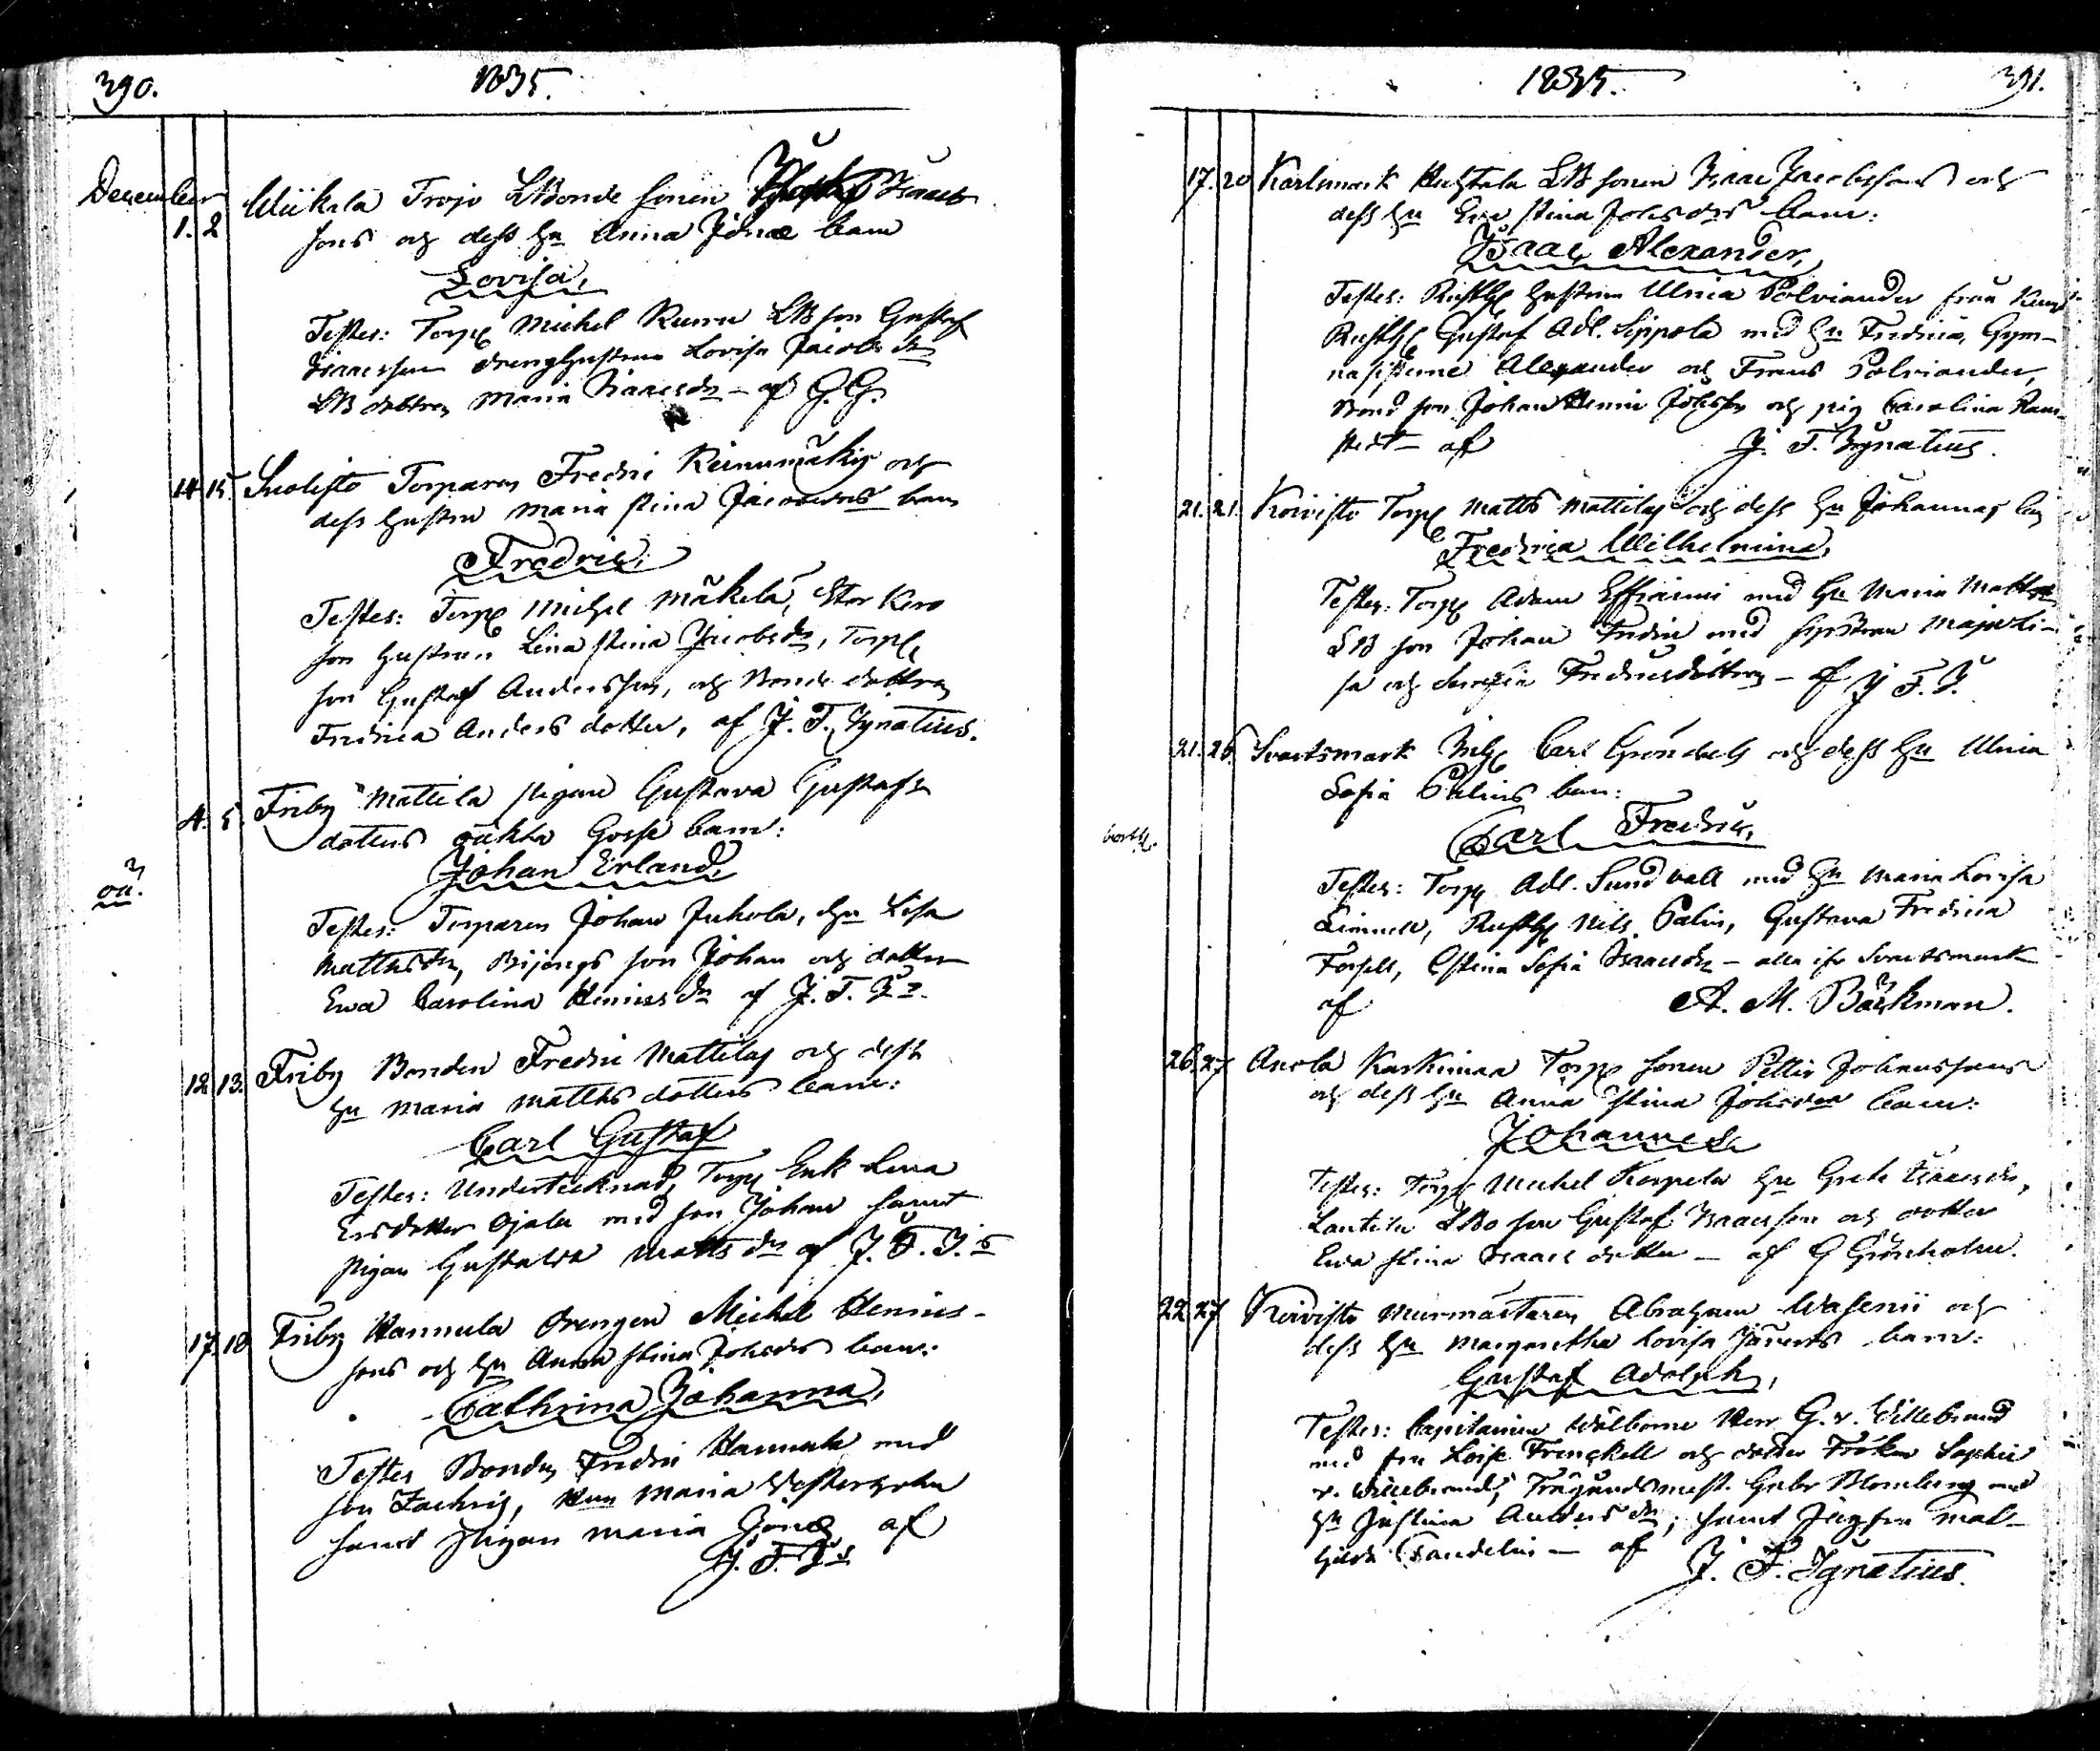 390. 1835.
December
1. 2 Wiikala Trojo LBonde sonen Isaacs
sons och dess hu Anna Jönæ barn
Lovisa,
Testes: Torp Michel Runu LB son Gustaf
Isaacsson drenghustrun Lovisa Jacobs dr
LB dottren Maria Isaacsdr – af G. G.
14 15 Suolisto Torparen Fredric Reinumäkis och
dess hustru Maria Stina Jacobsdrs barn
Fredric,
Testes: Torp Michel Mäkelä, Stor Kero
son hustrun Lena Stina Jacobsdr, Torp
son Gustaf Andersson, och Bonde dottren
Fredrica Anders dotter, af J. F. Ignatius.
4. 5 Friby Mattila pigan Gustava Gustafs
dotters oäkta Gosse barn:
Johan Erland,
oä.
Testes: Torparen Johan Juhola, hu Lisa
Mattsdr, Böjengs son Johan och dotter
Ewa Carolina Henrics dr af J. F. Is.
12 13. Friby Bonden Fredric Mattilas och dess
hu Maria Matths dotters barn:
Carl Gustaf
Testes: Undertecknad, Torp Enk Lena
Ersdotter Ojala med son Johan samt
pigan Gustava Matts dr af J. F. I.s
17. 18 Friby Hannula Drengen Michel Henrics-
sons och hu Anna Stina Johsdrs barn:
Cathrina Johanna,
Testes Bonden Fredric Hannula med
son Zachris, Maria Westergren
samt Pigan Maria Jönæ, af
J. F. Is
1835. 391.
17. 20 Karlsmark Huhtala LB sonen Isaac Jacobssons och
dess hu Eva Stina Johsdrs barn:
Isaac Alexander,
Testes: Rusth hustrun Ulrica Polviander från
Rusth Gustaf Adl. Sippola med hu Fredrica, Gym-
nasisterne Alexander och Frans Polviander,
Bond son Johan Henric Johsson och pig Carolina Ram-
stedt – af J. F. Ignatius.
21. 21. Koivisto Torp Matts Mattilas och dess hu Johannas barn
Fredrica Wilhelmina,
Testes: Torp Adam Effraimi med hu Maria Matts dr
LB son Johan Fredric med systrarna Maja Li-
sa och Serafia Fredricsdöttrar – af J. F. I.
21. 26. Svartsmark Inh Carl Gröndahls och dess hu Ulrica
Sofia Palins barn:
Carl Fredric,
Testes: Torp Adl. Sundvall med hu Maria Lovisa
Limnell, Rusth Nils Palin, Gustava Fredrica
Forsell, Stina Sofia Isaacsdr – alla ifr Svartsmark
af A. M. Bäckman.
26. 27 Anola Karhimaa Torp sonen Petter Johanssons
och dess hu Anna Stina Johsdrs barn:
Johannes
Testes: Torp Michel Korpela hu Greta Isaacsdr,
Lantila LBo son Gustaf Isaacsson och dotter
Ewa Stina Isaacs dotter – af G Grönholm.
22 27 Koivisto Murmästaren Abraham Wasenii och
dess hu Margaretha Lovisa barn:
Gustaf Adolph,
Testes: Capitainen Wälborne Herr G. v. Willebrand
med fru Loise Frenckell och dotter Fröken Sophie
v. Willebrand, Trägårdsmest. Gabr Blomberg med
hu Justina Anders dr; samt Jugfru Mat-
hilda Sandelin – af J. F. Ignatius.